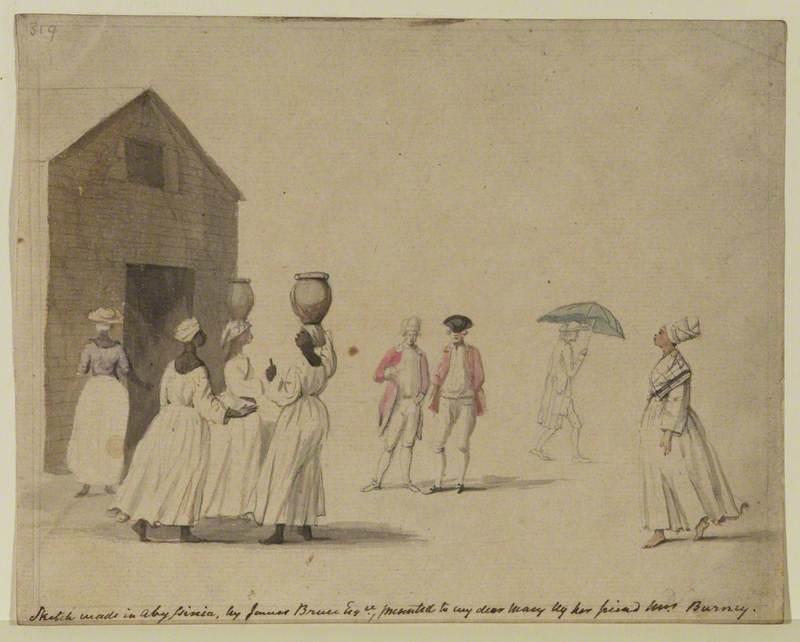 319
Sketch made in Abyssinia, by James Bruce Esqre, presented to my dear Mary by her friend Mrs Burney.